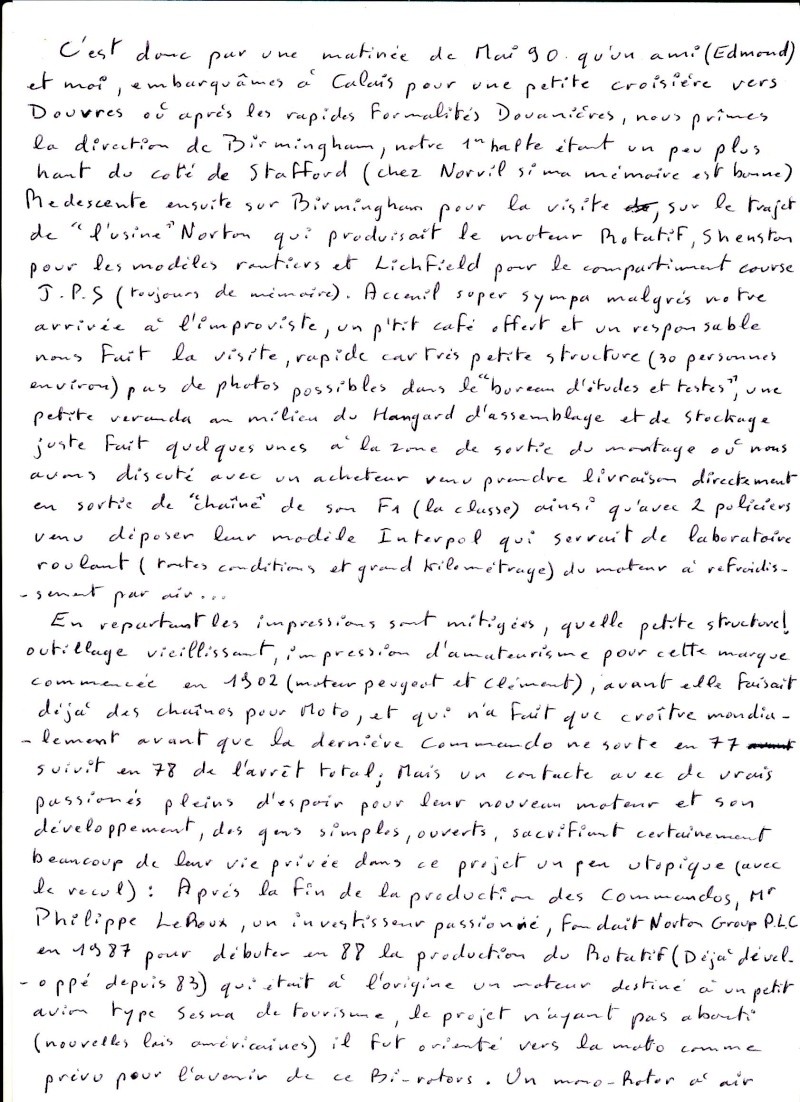 C'est donc par une matinée de Mai 90 qu'un ami (Edmond)
et moi, embarquâmes à Calais pour une petite croisière vers
Douvres où après les rapides Formalités Douanières, nous prîmes
la direction de Birmingham, notre 1er halte étant un peu plus
haut du coté de Stafford (chez Norvil si ma mémoire est bonne)
Redescente ensuite sur Birmingham pour la visite, sur le trajet
de "l'usine" Norton qui produisait le moteur Rotatif, Shenston
pour les modèles routiers et Lichfield pour le compartiment course
J.P.S (toujours de mémoire). Acceuil super sympa malgrés notre
arrivée à l'improviste, un p'tit café offert et un responsable
nous Fait la visite, rapide car très petite structure (30 personnes
environ) pas de photos possibles dans le "bureau d'études et testes", une
petite veranda au milieu du Hangard d'assemblage et de stockage
juste Fait quelques unes à la zone de sortie du montage où nous
avons discuté avec un acheteur venu prendre livraison directement
en sortie de "chaîne" de son F1 (la classe) ainsi qu'avec 2 policiers
venu déposer leur modèle Interpol qui servait de laboratoire
roulant (toutes conditions et grand kilométrage) du moteur à refroidis-
-sement par air...
En repartant les impressions sont mitigées, quelle petite structure!
outillage vieillissant, impression d'amateurisme pour cette marque
commencée en 1902 (moteur peugeot et Clément), avant elle Faisait
déjà des chaînes pour Moto, et qui n'a Fait que croître mondia-
-lement avant que la dernière Commando ne sorte en 77
suivit en 78 de l'arrêt total; Mais un contacte avec de vrais
passionés pleins d'espoir pour leur nouveau moteur et son
développement, des gens simples, ouverts, sacrifiant certainement
beaucoup de leur vie privée dans ce projet un peu utopique (avec
le recul) : Après la fin de la production des Commandos, Mr
Philippe LeRoux, un investisseur passionné, Fondait Norton Group P.L.C
en 1987 pour débuter en 88 la production du Rotatif (Déjà dével-
-oppé depuis 83) qui était à l'origine un moteur destiné à un petit
avion type Sesna de tourisme, le projet n'ayant pas abouti
(nouvelles lois américaines) il fut orienté vers la moto comme
prévu pour l'avenir de ce Bi-rotors. Un mono-Rotor à air